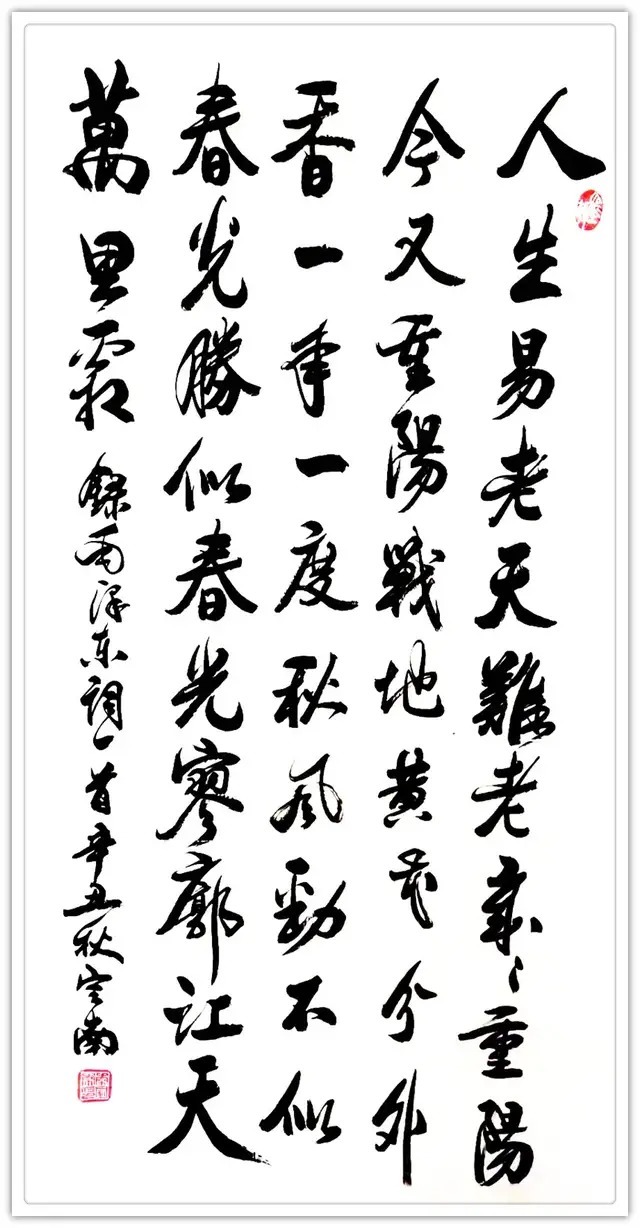 人生易老天難老歲〻重陽
今又重陽戰地黄花分外
香一年一度秋風勁不似
春光勝似春光寥廓江天
萬里霜 録毛泽东詞一首辛丑秋南